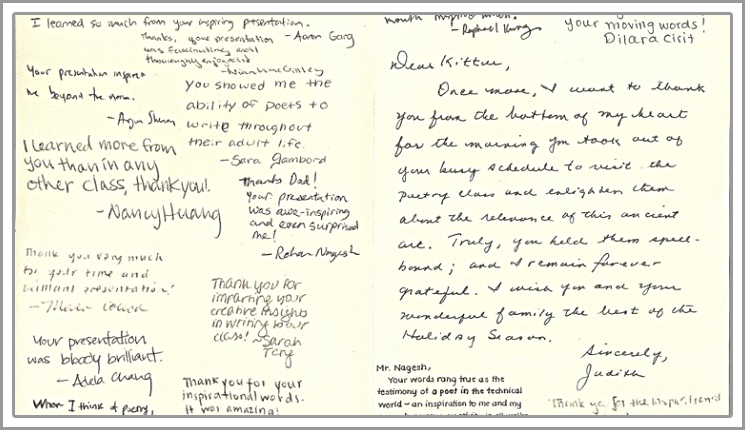 I learned so much from your inspiring presentation.
- Aaron Garg
Thanks, your presentation
was fascinating and
thoroughly enjoyed
Your presentation inspired
me beyond the norm.
You showed me the
ability of poets to
write throughout
their adult life.
- Sara Gambord
I learned more from
you than in any
other class, thankyou!
- Nancy Huang
Thanks Dad!
Your presentation
was awe-inspiring
and even surprised
me!
- Rohan Nagesh
Thank you very much
for your time and
brilliant presentation!
Thank you for
imparting your
creative insights
in writing to our
class! - Sarah
Your presentation
was bloody brilliant.
- Adela Chang
Thank you for your
inspirational words.
It was amazing!
When I think of poetry,
- Raphael
your moving words!
Dilara Cirit
Dear Kittur,
Once more, I want to thank
you from the bottom of my heart
for the morning you took out of
your busy schedule to visit the
poetry class and enlighten them
about the relevance of this ancient
art. Truly, you held them spell-
bound; and I remain forever
grateful. I wish you and your
wonderful family the best of the
Holiday Season.
Sincerely,
Judith
Mr. Nagesh,
Your words rang true as the
testimony of a poet in the technical
world - an inspiration to me and my
Thank you for the